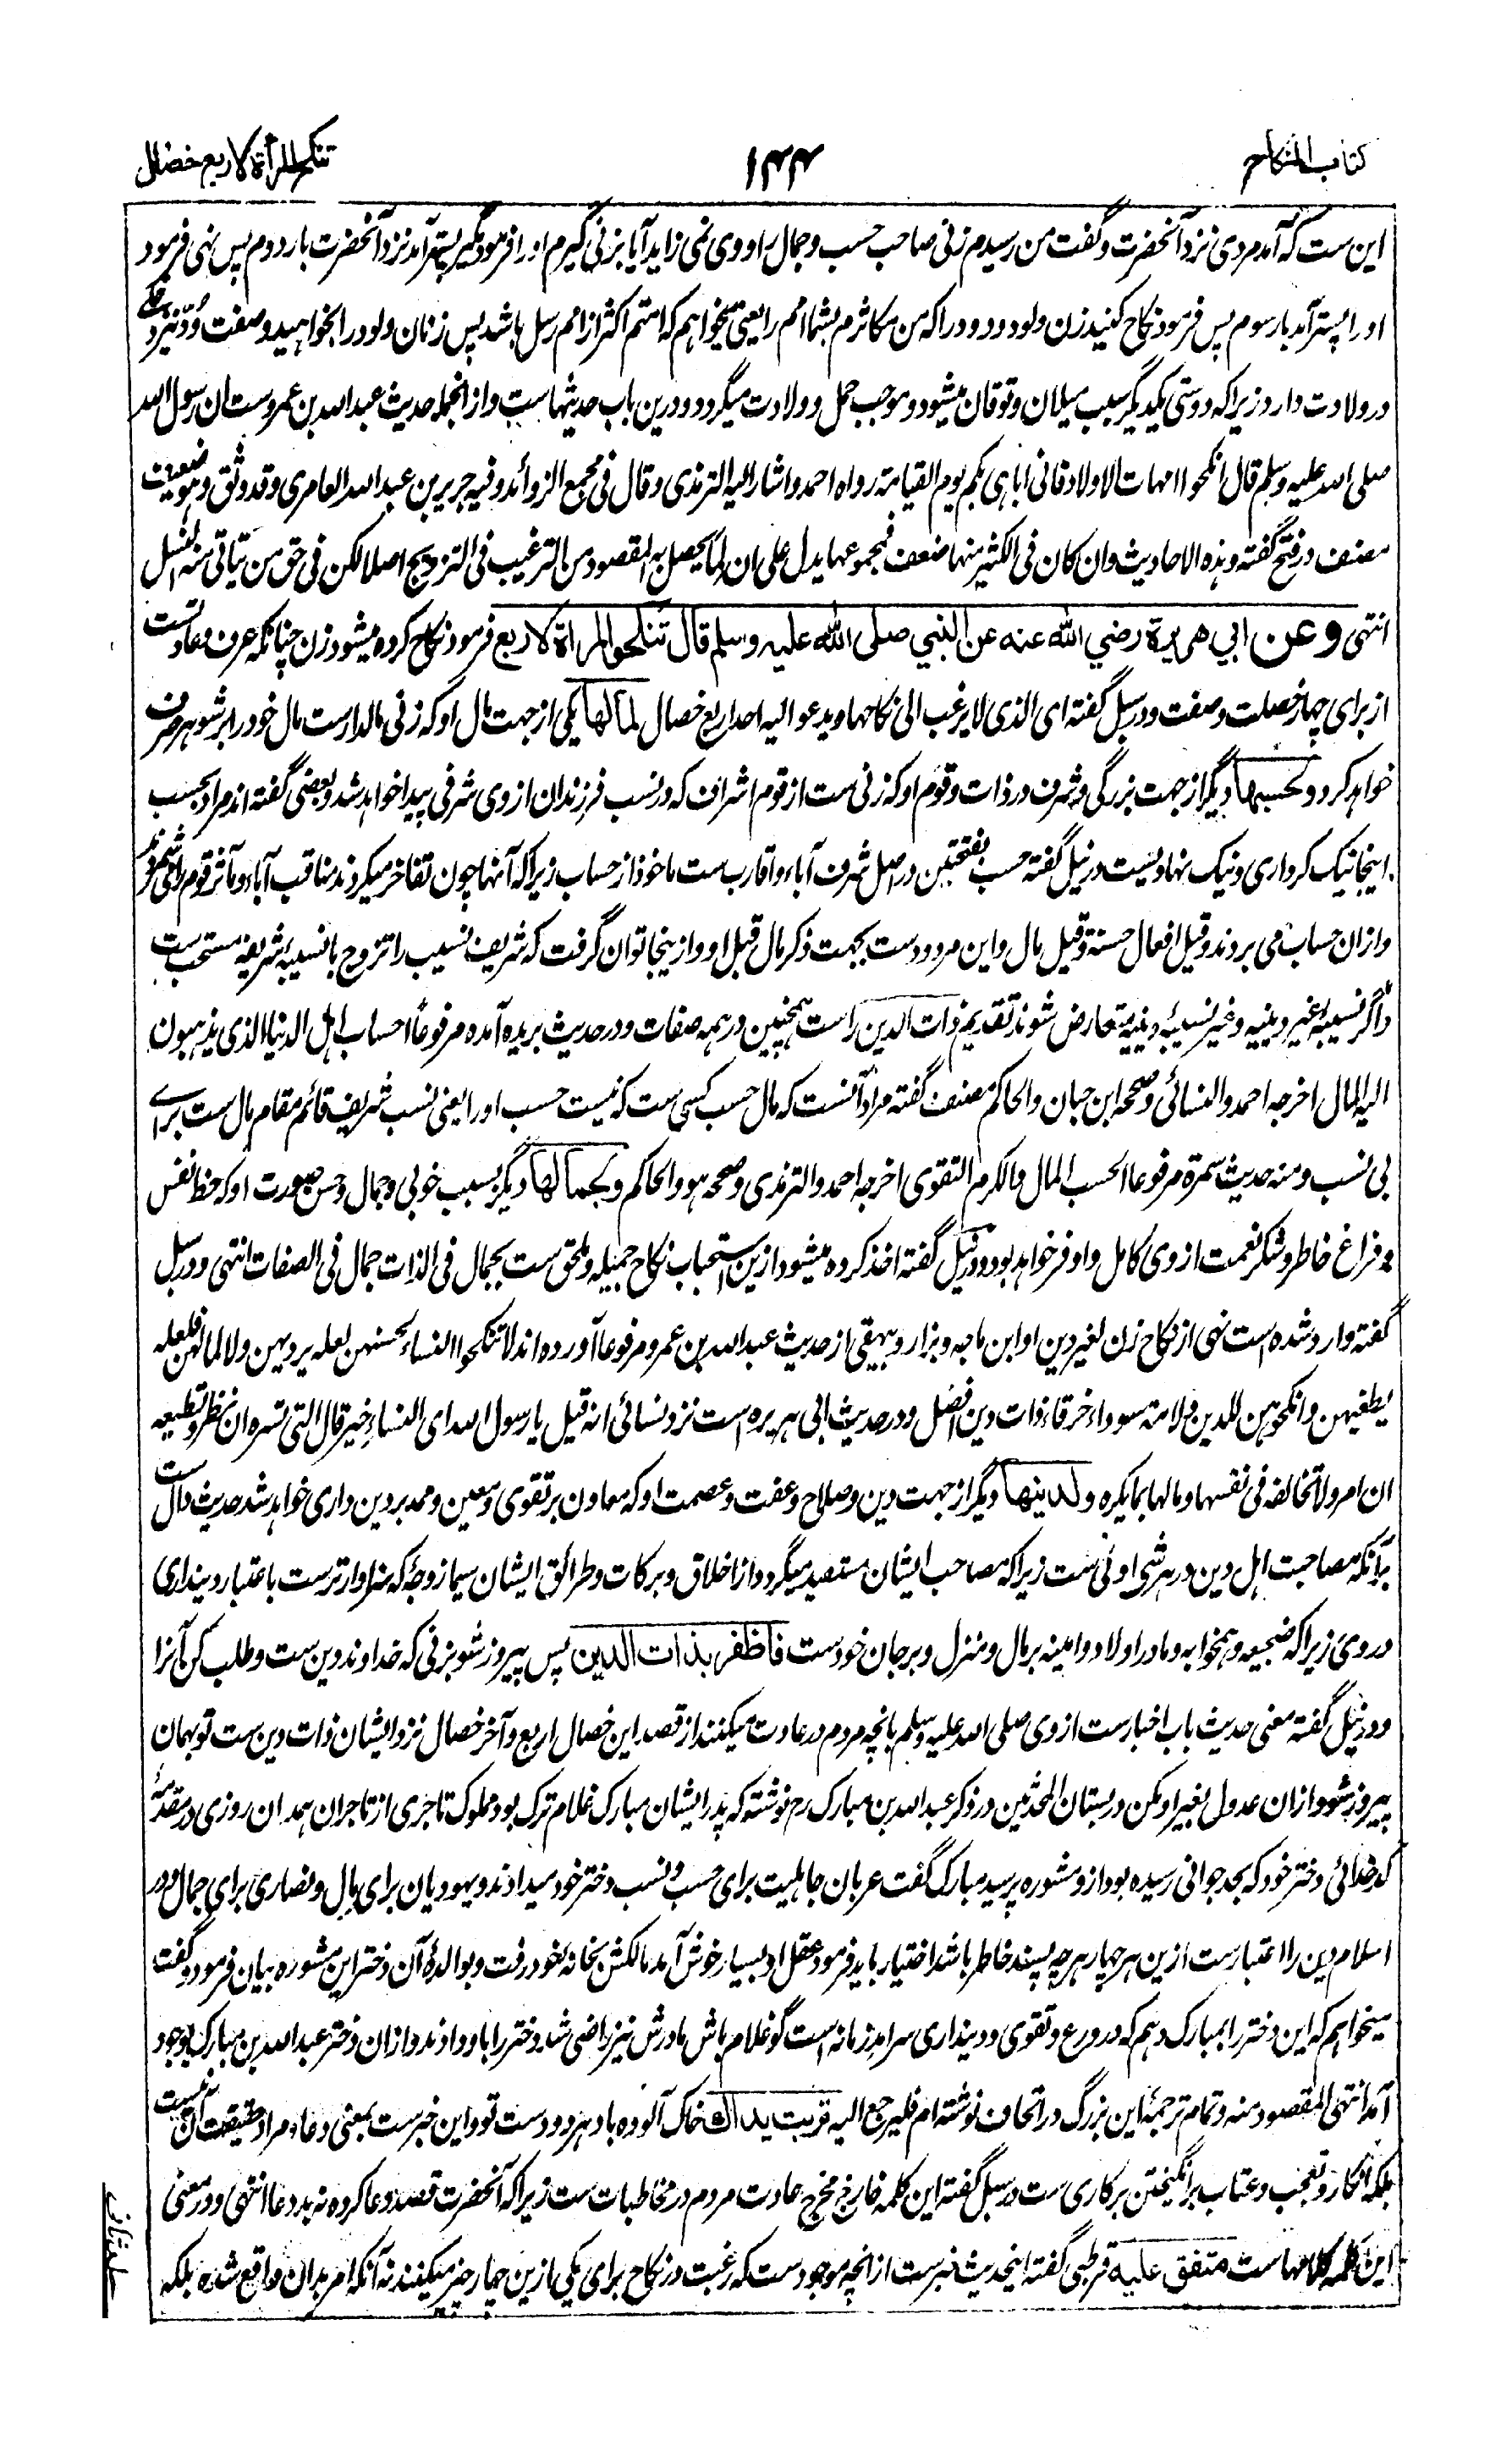 کتاب النکاح
۱۴۴
تنکح المرأة لاربع خصال
این ست که آمد مردی نزد آنحضرت و گفت من رسیدم زنی صاحب حسب و جمال را و وی نمی زاید آیا بزنی گیرم او را فرمود مگیر پستر آمد نزد آنحضرت بار دوم پس نهی فرمود
او را پستر آمد بار سوم پس فرمود نکاح کنید زن ولود و ودود را که من مکاثرم بشما امم را یعنی میخواهم که امتم اکثر از امم رسل باشد پس زنان ولود را بخواهید و صفت ودّ نیز دخلے
در ولادت دارد زیرا که دوستی یکدیگر سبب میلان و توقان میشود و موجب حمل و ولادت میگردد و درین باب حدیثهاست و از انجمله حدیث عبد الله بن عمروست ان رسول الله
صلی الله علیه وسلم قال انکحوا امهات الاولاد فانی اباهی بکم یوم القیامة رواه احمد و اشار الیه الترمذی و قال فی مجمع الزوائد و فیه جریر بن عبد الله العامری و قد وثق و هو ضعیف
مصنف در فتح گفته و هذه الاحادیث و ان کان فی الکثیر منها ضعف فمجموعها یدل علی ان لما یحصل به المقصود من الترغیب فی التزویج اصلا لکن فی حق من یتاتی منه النسل
انتهی وعن ابي هريرة رضي الله عنه عن النبي صلى الله عليه وسلم قال تنكح المرأة لاربع فرمود نکاح کرده میشود زن چنانکه عرف و عادتست
از برای چهار خصلت و صفت و در سبل گفته ای الذی لا یرغب الی نکاحها و یدعو الیه احد اربع خصال لمالها یکی از جهت مال او که زنی مالدارست مال خود را بر شوهر صرف
خواهد کرد ولحسبها دیگر از جهت بزرگی و شرف در ذات و قوم او که زنی ست از قوم اشراف که در نسب فرزندان از وی شرفی پیدا خواهد شد و بعضی گفته اند مراد بحسب
اینجا نیک کرداری و نیک نهادیست در نیل گفته حسب بفتحتین در اصل شرف آباء و اقارب ست ماخوذ از حساب زیرا که آنها چون تفاخر میکردند مناقب آباء و مآثر قوم را می شمردند
و ازان حساب می بردند و قیل افعال حسنة و قیل مال و این مردودست بجهت ذکر مال قبل او و از ینجا توان گرفت که شریف نسیب را تزوج با نسیبهٔ شریفه مستحب ست
و اگر نسیبهٔ غیر دینیه و غیر نسیبهٔ دینیه متعارض شوند تقدیم ذات الدین راست همچنین در همه صفات و در حدیث بریده آمده مرفوعاً احساب اهل الدنیا الذی یذهبون
الیه المال اخرجه احمد و النسائی و صححه ابن حبان و الحاکم مصنف گفته مراد آنست که مال حسب کسی ست که نیست حسب او را یعنی نسب شریف قائم مقام مال ست برای
بی نسب و منه حدیث سمرة مرفوعا الحسب المال و الکرم التقوی اخرجه احمد و الترمذی و صححه هو و الحاکم وبجمالها دیگر بسبب خوبی و جمال و حسن صورت او که حظ نفس
و فراغ خاطر و شکر نعمت از وی کامل و اوفر خواهد بود و در نیل گفته اخذ کرده میشود ازین استحباب نکاح جمیله و ملحق ست بجمال فی الذات جمال فی الصفات انتهی و در سبل
گفته وارد شده است نهی از نکاح زن لغیر دین او ابن ماجه و بزار و بیهقی از حدیث عبد الله بن عمرو مرفوعاً آورده اند لا تنکحوا النساء لحسنهن لعله یردیهن و لا لمالهن فلعله
یطغیهن و انکحوهن للدین و لامة سوداء خرقاء ذات دین افضل و در حدیث ابی هریره است نزد نسائی انه قیل یا رسول الله ای النساء خیر قال التی تسره ان نظر و تطیعه
ان امر و لا تخالفه فی نفسها و مالها بما یکره ولدینها دیگر از جهت دین و صلاح و عفت و عصمت او که معاون بر تقوی و معین و ممد بر دین داری خواهد شد حدیث دال ست
برآنکه مصاحبت اهل دین در هر شی اولی ست زیرا که مصاحب ایشان مستفید میگردد از اخلاق و برکات و طرائق ایشان سیما زوجهٔ که سزاوارترست باعتبار دینداری
در وی زیرا که ضجیعه و همخوابه و مادر اولاد و امینه بر مال و منزل و بر جان خودست فاظفر بذات الدين پس پیروز شو بزنی که خداوند دین ست و طلب کن آنرا
و در نیل گفته معنی حدیث باب اخبارست از وی صلی الله علیه وسلم بانچه مردم در عادت میکنند از قصد این خصال اربع و آخر خصال نزد ایشان ذات دین ست تو بهمان
پیروز شو و ازان عدول بغیر او مکن در بستان المحدثین در ذکر عبد الله بن مبارک رح نوشته که پدر ایشان مبارک غلام ترک بود مملوک تاجری از تاجران همدان روزی در مقدمهٔ
کدخدائی دختر خود که بحد جوانی رسیده بود ازو مشوره پرسید مبارک گفت عربان جاهلیت برای حسب و نسب دختر خود میدادند و یهودیان برای مال و نصاری برای جمال و در
اسلام دین را اعتبارست ازین هر چهار هر چه پسند خاطر باشد اختیار باید فرمود عقل او بسیار خوش آمد مالکش بخانه خود رفت و بوالدهٔ آن دختر این مشوره بیان فرمود و گفت
میخواهم که این دختر را بمبارک دهم که در ورع و تقوی و دینداری سرآمد زمانه است گو غلام باش مادرش نیز راضی شد دختر را باو دادند و ازان دختر عبد الله بن مبارک بوجود
آمد انتهی المقصود منه و تمام ترجمهٔ این بزرگ در اتحاف نوشته ام فلیرجع الیه تربت يداك خاک آلوده باد هر دو دست تو و این خبرست بمعنی دعا و مراد حقیقت آن نیست
بلکه انکار و تعجب و عتاب و برانگیختن بر کاری ست در سبل گفته این کلمه خارج مخرج عادت مردم در مخاطبات ست زیرا که آنحضرت قصد دعا کرده نه بددعا انتهی و در معنی
این کلمه کلامهاست متفق عليه قرطبی گفته اینحدیث خبرست از انچه موجودست که رغبت در نکاح برای یکی ازین چهار چیز میکنند نه آنکه امر بدان واقع شده بلکه
جلد ثانی